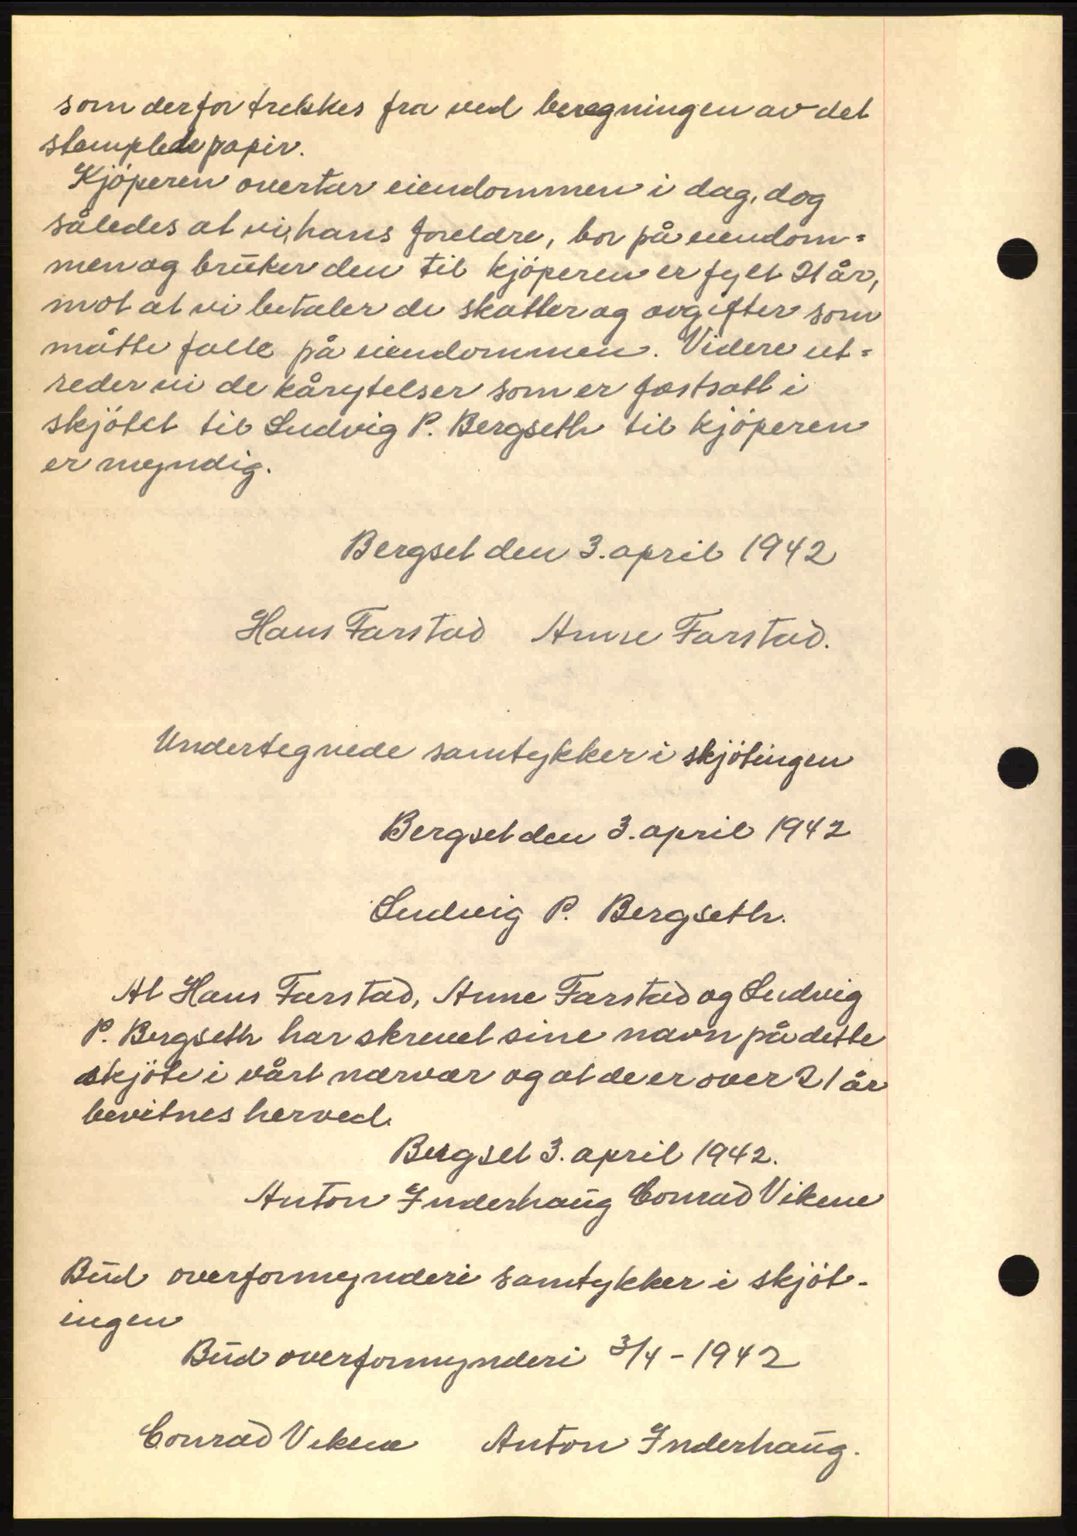 som derfor trekkes fra ved beregningen av det
stemplede papir.
Kjøperen overtar eiendommen i dag, dog
således at vi, hans foreldre, bor på eiendom=
men og bruker den til kjøperen er fylt 21 år,
mot at vi betaler de skatter og avgifter som
måtte falle på eiendommen. Videre ut=
reder vi de kårytelser som er fastsatt i
skjøtet til Ludvig P. Bergseth til kjøperen
er myndig.
Bergset den 3. april 1942
Hans Farstad Anne Farstad.
Undertegnede samtykker i skjøtingen
Bergset den 3. april 1942
Ludvig P. Bergseth.
At Hans Farstad, Anne Farstad og Ludvig
P. Bergseth har skrevet sine navn på dette
skjøte i vårt nærvær og at de er over 21 år
bevitnes herved.
Bergset 3. april 1942.
Anton Inderhaug Conrad Vikene
Bud overformynderi samtykker i skjøt-
ingen
Bud overformynderi 3/4 - 1942
Conrad Vikene Anton Inderhaug.